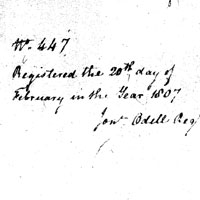 No. 447
Registered the 20th day of
February in the Year 1807
Jon. Odell Reg